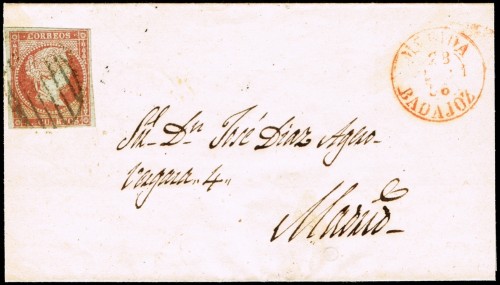 CORREOS
MERIDA
BADAJOZ
Sr. Dn. José Diaz Agero
Vergara "4"
Madrid